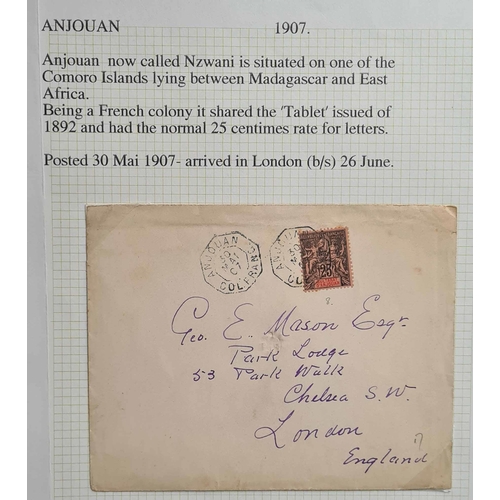 ANJOUAN 1907.
Anjouan now called Nzwani is situated on one of the
Comoro Islands lying between Madagascar and East
Africa.
Being a French colony it shared the 'Tablet' issued of
1892 and had the normal 25 centimes rate for letters.
Posted 30 Mai 1907- arrived in London (b/s) 26 June.
ANJOUAN
30
MAI
07
COL. FRANC
ANJOUAN
30
25
Geo. E. Mason Esqr.
Park Lodge
53 Park Walk
Chelsea S.W.
London
England